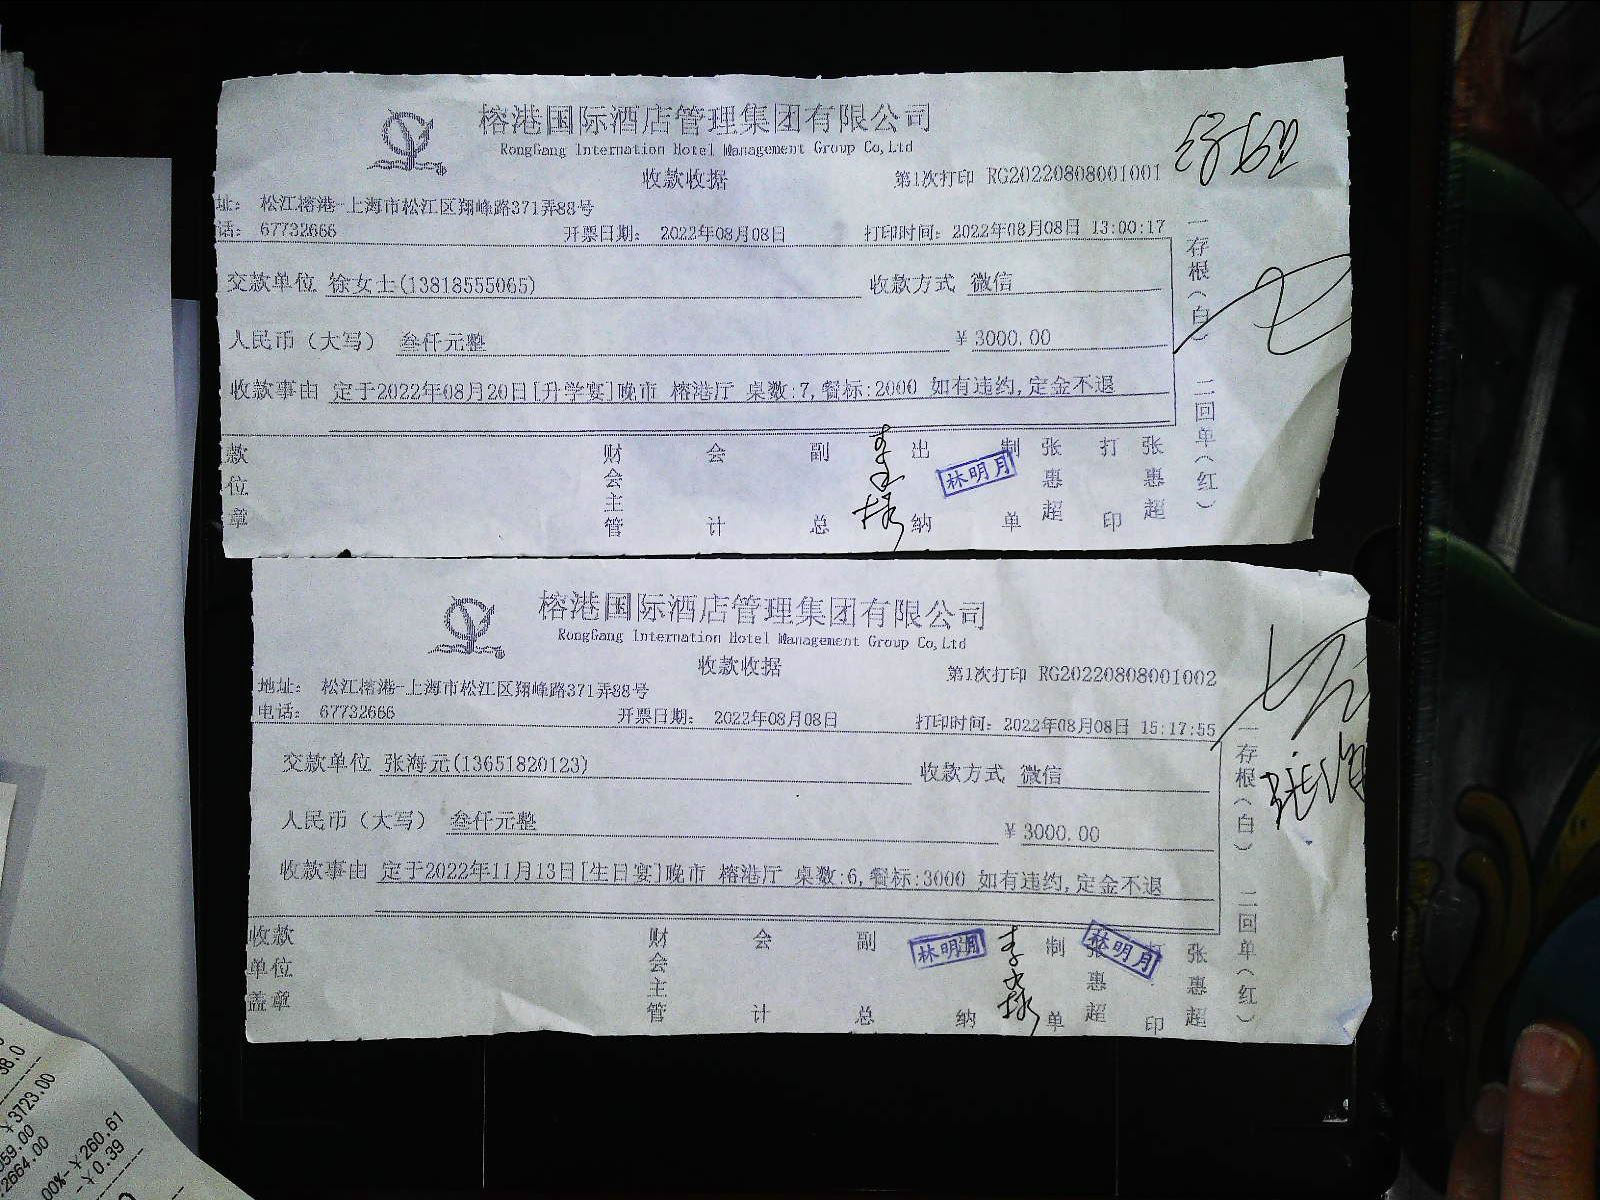 榕港国际酒店管理集团有限公司
RongGang Internation Hotel Management Group Co,Ltd
收款收据 第1次打印 RG20220808001001
址： 松江榕港-上海市松江区翔峰路371弄88号
话： 67732666 开票日期： 2022年08月08日 打印时间： 2022年08月08日 13:00:17
交款单位 徐女士(13818555065) 收款方式 微信
人民币（大写） 叁仟元整 ￥3000.00
收款事由 定于2022年08月20日[升学宴]晚市 榕港厅 桌数:7,餐标:2000 如有违约,定金不退
款位章 财会主管 会计 副总 出纳 林明月 制单 张惠超 打印 张惠超
一存根（白） 二回单（红）
榕港国际酒店管理集团有限公司
RongGang Internation Hotel Management Group Co,Ltd
收款收据 第1次打印 RG20220808001002
地址： 松江榕港-上海市松江区翔峰路371弄88号
电话： 67732666 开票日期： 2022年08月08日 打印时间： 2022年08月08日 15:17:55
交款单位 张海元(13651820123) 收款方式 微信
人民币（大写） 叁仟元整 ￥3000.00
收款事由 定于2022年11月13日[生日宴]晚市 榕港厅 桌数:6,餐标:3000 如有违约,定金不退
收款单位盖章 财会主管 会计 副总 林明月 纳 制单 林明月 张惠超 打印 张惠超
一存根（白） 二回单（红）
38.0
￥3723.00
059.00
2664.00
00%-￥260.61
-￥0.39